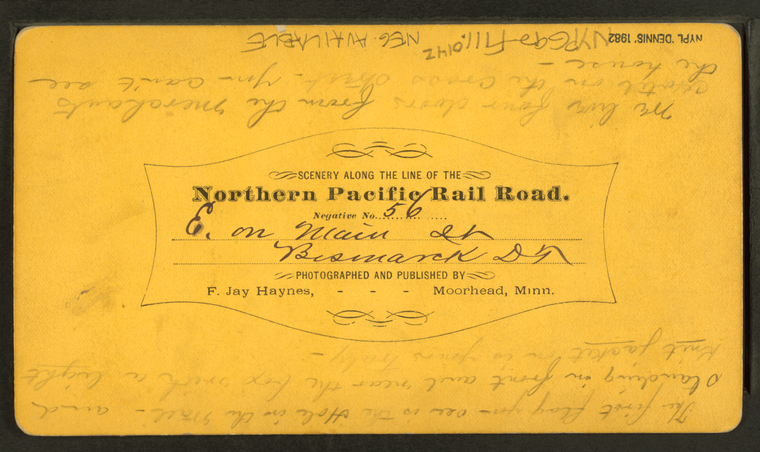 NYPL 'DENNIS, 1982
NEG. AVAILABLE
We live four doors from the Merchants
Hotel on the Cross Street. You can't see
the house —
SCENERY ALONG THE LINE OF THE
Northern Pacific Rail Road.
Negative No. 56
E. on Main St
Bismarck D.T.
PHOTOGRAPHED AND PUBLISHED BY
F. Jay Haynes, - - - Moorhead, Minn.
The first flag you see is the Hole in the Wall — and
standing in front and near the box with a light
knit jacket on is yours truly —